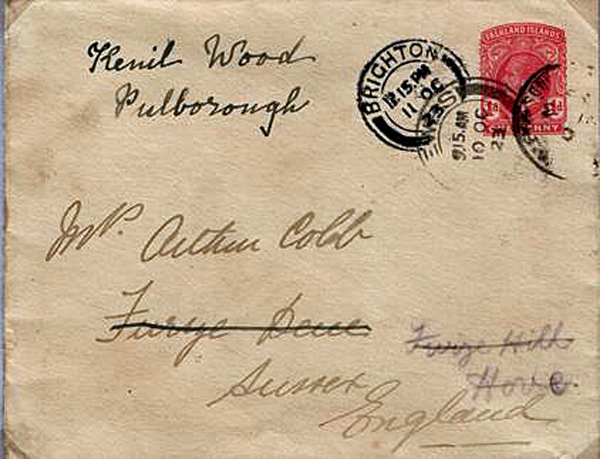 Kenil Wood
Pulborough
FALKLAND ISLANDS
1d 1d
PENNY
BRIGHTON
12.15 PM
11 OC
23
9.15 AM
10 OC
23
Mr. Arthur Cobb
Furze Dene
Furze Hill
Hove
Sussex
England